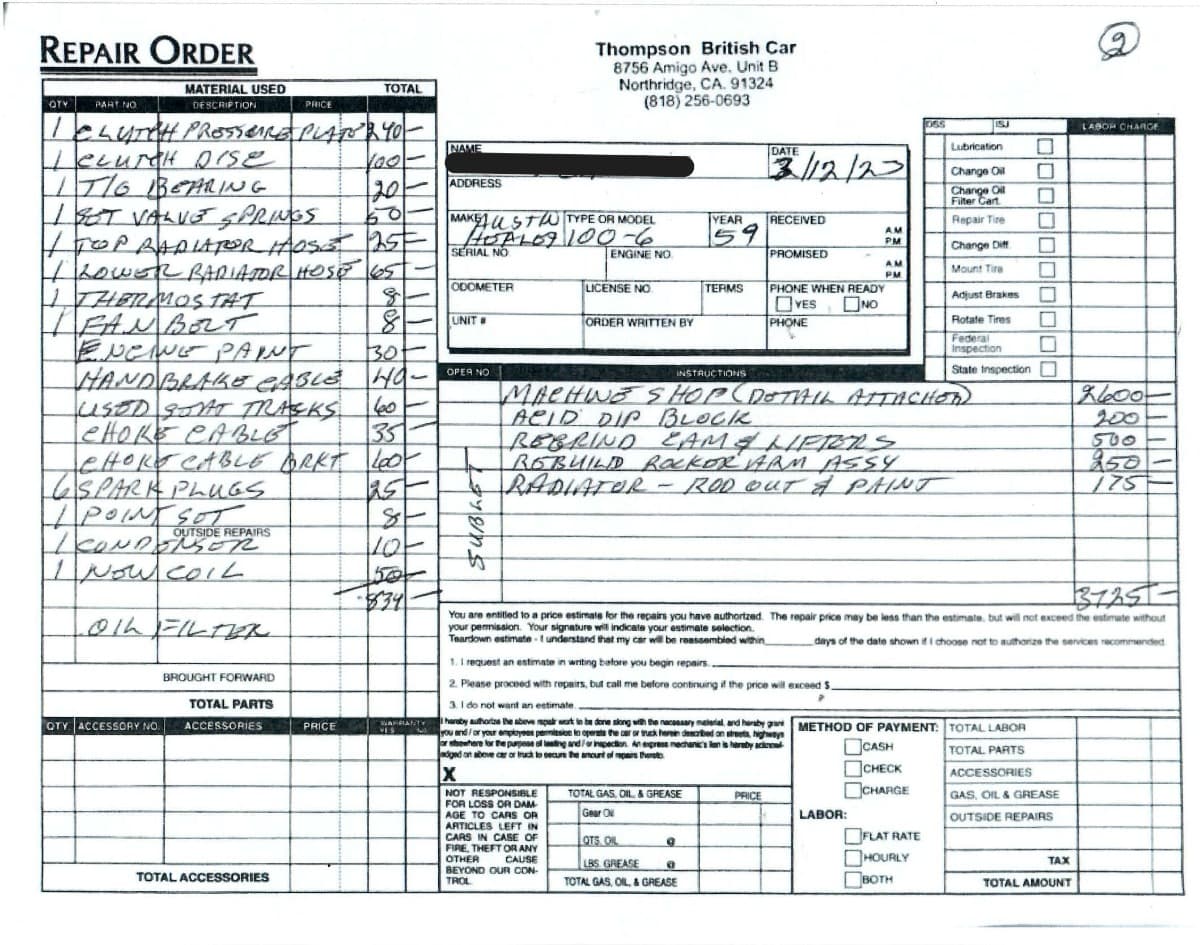 2
REPAIR ORDER
Thompson British Car
8756 Amigo Ave, Unit B
Northridge, CA. 91324
(818) 256-0693
MATERIAL USED TOTAL
QTY. PART NO. DESCRIPTION PRICE
1 CLUTCH PRESSURE PLATE 240-
1 CLUTCH DISC 100-
1 T/O BEARING 20-
1 SET VALVE SPRINGS 50-
1 TOP RADIATOR HOSE 25-
1 LOWER RADIATOR HOSE 65-
1 THERMOSTAT 8-
1 FAN BELT 8-
ENGINE PAINT 30-
HANDBRAKE CABLE 40-
USED SEAT TRACKS 60-
CHOKE CABLE 35
CHOKE CABLE BRKT 60-
6 SPARK PLUGS 25-
1 POINT SET 8-
OUTSIDE REPAIRS
1 CONDENSER 10-
1 NEW COIL 50-
834-
OIL FILTER
BROUGHT FORWARD
TOTAL PARTS
QTY ACCESSORY NO. ACCESSORIES PRICE WARRANTY
YES NO
TOTAL ACCESSORIES
NAME
DATE
3/12/20
ADDRESS
MAKE AUSTIN HEALEY
TYPE OR MODEL 100-6
YEAR 59
RECEIVED A.M. P.M.
SERIAL NO ENGINE NO. PROMISED A.M. P.M.
ODOMETER LICENSE NO. TERMS PHONE WHEN READY
YES NO
UNIT # ORDER WRITTEN BY PHONE
ISJ LABOR CHARGE
Lubrication
Change Oil
Change Oil
Filter Cart.
Repair Tire
Change Diff.
Mount Tire
Adjust Brakes
Rotate Tires
Federal
Inspection
State Inspection
OPER NO INSTRUCTIONS
MACHINE SHOP (DETAIL ATTACHED) 2600-
ACID DIP BLOCK 200-
REGRIND CAM & LIFTERS 500-
REBUILD ROCKER ARM ASSY 250-
RADIATOR - ROD OUT & PAINT 175-
SUBLET
3725-
You are entitled to a price estimate for the repairs you have authorized. The repair price may be less than the estimate, but will not exceed the estimate without
your permission. Your signature will indicate your estimate selection.
Teardown estimate - I understand that my car will be reassembled within______days of the date shown if I choose not to authorize the services recommended.
1. I request an estimate in writing before you begin repairs.
2. Please proceed with repairs, but call me before continuing if the price will exceed $
3. I do not want an estimate.
I hereby authorize the above repair work to be done along with the necessary material, and hereby grant
you and / or your employees permission to operate the car or truck herein described on streets, highways
or elsewhere for the purpose of testing and / or inspection. An express mechanic's lien is hereby acknowl-
edged on above car or truck to secure the amount of repairs thereto.
X
NOT RESPONSIBLE
FOR LOSS OR DAM-
AGE TO CARS OR
ARTICLES LEFT IN
CARS IN CASE OF
FIRE, THEFT OR ANY
OTHER CAUSE
BEYOND OUR CON-
TROL.
TOTAL GAS, OIL, & GREASE PRICE
Gear Oil
QTS. OIL @
LBS. GREASE @
TOTAL GAS, OIL, & GREASE
METHOD OF PAYMENT:
CASH
CHECK
CHARGE
LABOR:
FLAT RATE
HOURLY
BOTH
TOTAL LABOR
TOTAL PARTS
ACCESSORIES
GAS, OIL & GREASE
OUTSIDE REPAIRS
TAX
TOTAL AMOUNT